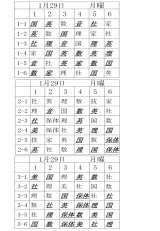 1月29日 月曜
1 2 3 4 5 6
1-1 国 英 数 音 社 家
1-2 英 数 国 理 家 社
1-3 社 理 音 国 理 英
1-4 家 国 英 数 英 理
1-5 音 社 英 家 数 国
1-6 数 家 理 社 国 英
1月29日 月曜
1 2 3 4 5 6
2-1 社 英 理 数 技 家
2-2 理 音 国 数 英 社
2-3 社 保体 理 英 国 数
2-4 美 保体 社 英 理 国
2-5 技 家 英 国 数 保体
2-6 英 社 数 理 国 保体
1月29日 月曜
1 2 3 4 5 6
3-1 美 国 理 英 数 社
3-2 社 理 美 社 国 数
3-3 理 数 国 保体 英 社
3-4 数 社 英 保体 理 国
3-5 社 理 保体 数 美 国
3-6 国 数 保体 美 社 理